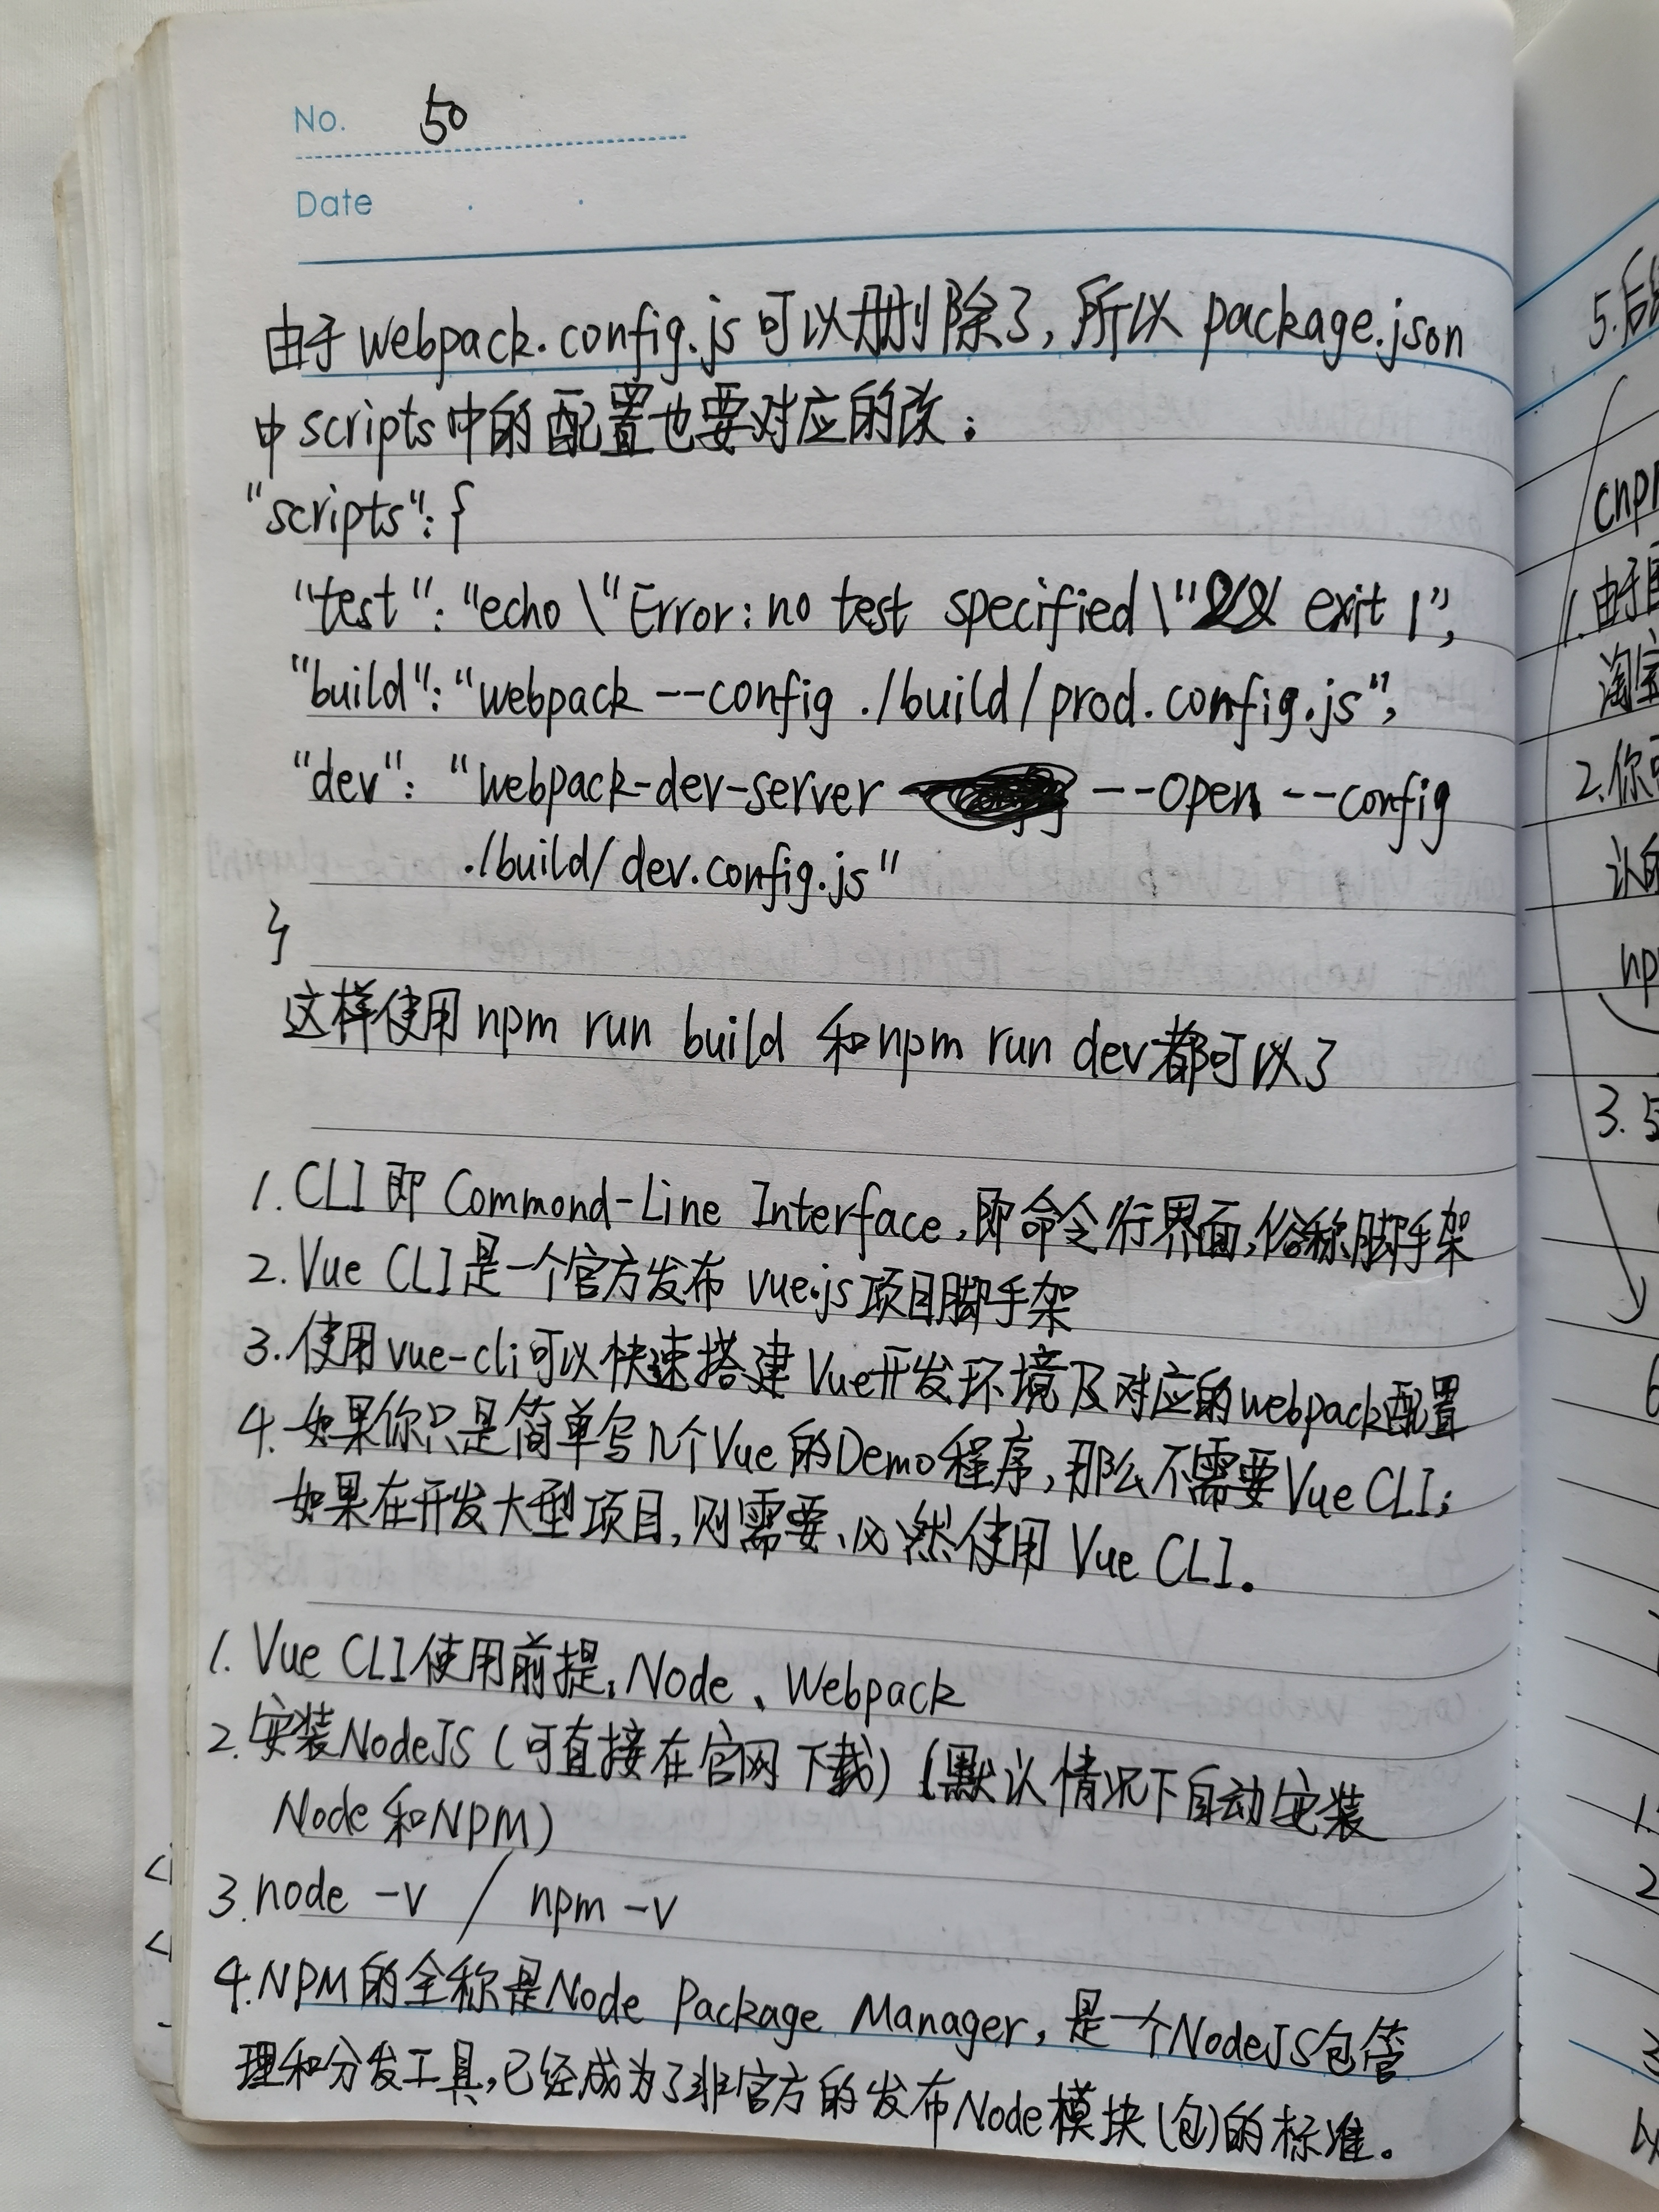 No. 50
Date
由于webpack.config.js可以删除了,所以package.json
中scripts中的配置也要对应的改:
"scripts":{
"test":"echo \"Error:no test specified\"&& exit 1",
"build":"webpack --config ./build/prod.config.js",
"dev": "webpack-dev-server --open --config
./build/dev.config.js"
}
这样使用npm run build 和npm run dev都可以了
1.CLI即Commond-Line Interface,即命令行界面,俗称脚手架
2.Vue CLI是一个官方发布 vue.js项目脚手架
3.使用vue-cli可以快速搭建Vue开发环境及对应的webpack配置
4.如果你只是简单写几个Vue的Demo程序,那么不需要Vue CLI;
如果在开发大型项目,则需要、必然使用Vue CLI.
1.Vue CLI使用前提:Node、Webpack
2.安装NodeJS(可直接在官网下载)(默认情况下自动安装
Node和NPM)
3.node -v / npm -v
4.NPM的全称是Node Package Manager,是一个NodeJS包管
理和分发工具,已经成为了非官方的发布Node模块(包)的标准。
5.后
cnp
1.由于
淘宝
2.你
认的
np
3.
6
1.
2
3